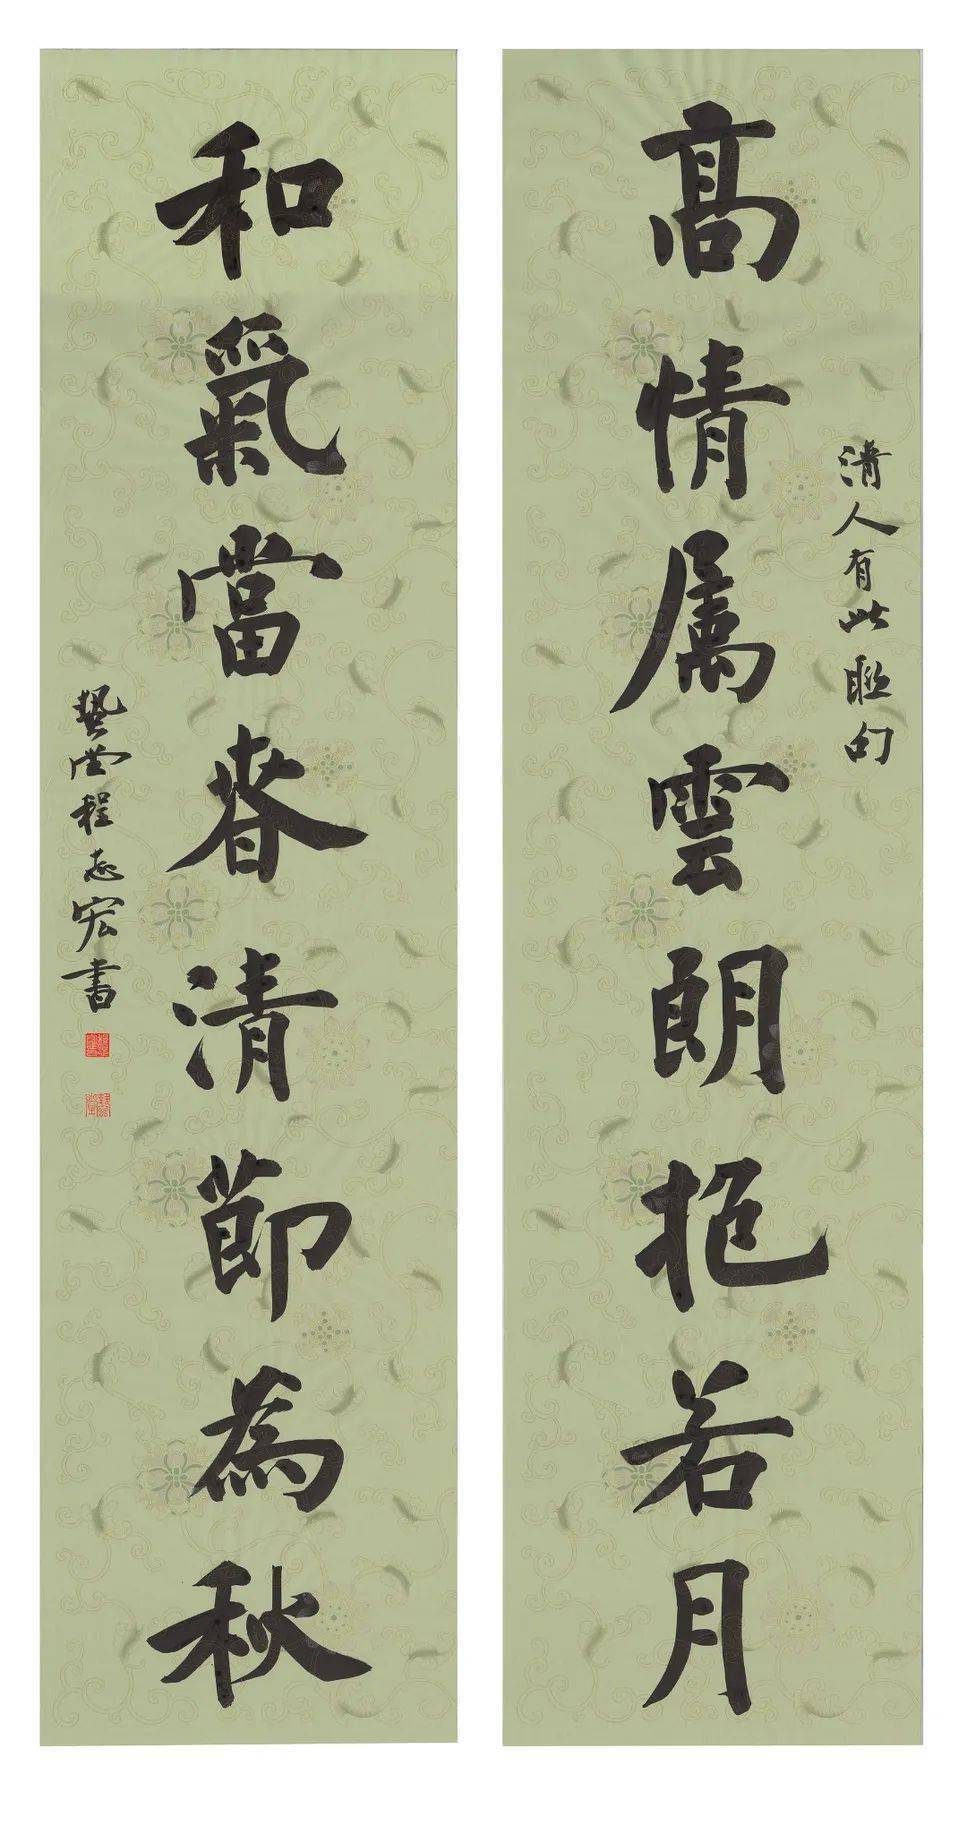 清人有此聯句
髙情属雲朗抱若月
和氣當春清節為秋
藝堂程志宏書